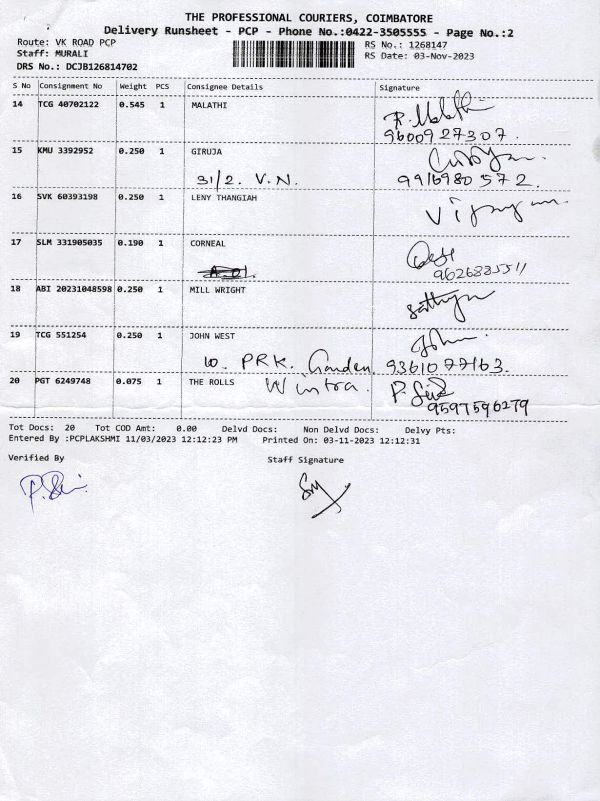 THE PROFESSIONAL COURIERS, COIMBATORE
Delivery Runsheet - PCP - Phone No.:0422-3505555 - Page No.:2
Route: VK ROAD PCP
Staff: MURALI
DRS No.: DCJB126814702
RS No.: 1268147
RS Date: 03-Nov-2023
S No Consignment No Weight PCS Consignee Details Signature
14 TCG 40702122 0.545 1 MALATHI R. Malathi
9600927307.
15 KMU 3392952 0.250 1 GIRUJA
31/2. V.N. 9916980572.
16 SVK 60393198 0.250 1 LENY THANGIAH
17 SLM 331905035 0.190 1 CORNEAL
18 ABI 20231048598 0.250 1 MILL WRIGHT
19 TCG 551254 0.250 1 JOHN WEST John
10. PRK. Garden 9361077163.
20 PGT 6249748 0.075 1 THE ROLLS Wintra.
9597596279
Tot Docs: 20 Tot COD Amt: 0.00 Delvd Docs: Non Delvd Docs: Delvy Pts:
Entered By :PCPLAKSHMI 11/03/2023 12:12:23 PM Printed On: 03-11-2023 12:12:31
Verified By Staff Signature